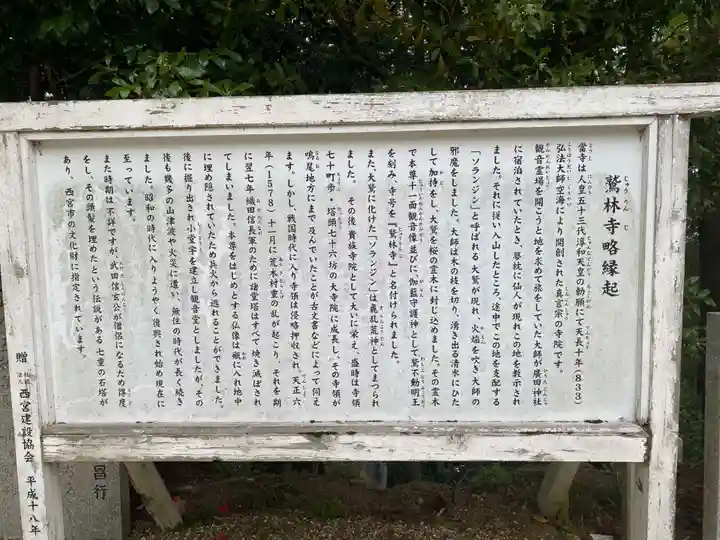 鷲林寺略縁起
當寺は人皇五十三代淳和天皇の勅願にて天長十年(833)
弘法大師空海により開創された真言宗の寺院です。
観音霊場を開こうと地を求めて旅をしていた大師が廣田神社
に宿泊されていたとき、夢枕に仙人が現れこの地を教示され
ました。それに従い入山したところ、途中でこの地を支配する
「ソランジン」と呼ばれる大鷲が現れ、火焔を吹き大師の
邪魔をしました。大師は木の枝を切り、湧き出る清水にひた
して加持をし、大鷲を桜の霊木に封じ込めました。その霊木
で本尊十一面観音像並びに、伽藍守護神として鷲不動明王
を刻み、寺号を『鷲林寺』と名付けられました。
また大鷲に化けた「ソランジン」は麁乱荒神としてまつられ
ました。その後貴族寺院として大いに栄え、盛時は寺領
七十町歩・塔頭七十六坊の大寺院に成長し、その寺領が
鳴尾地方にまで及んでいたことが古文書などによって伺え
ます。しかし、戦国時代に入り寺領は侵略押収され、天正六
年(1578)十一月に荒木村重の乱が起こり、それを期
に翌七年織田信長軍のために諸堂塔はすべて焼き滅ぼされ
てしまいました。本尊をはじめとする仏像は瓶に入れ地中
に埋め隠されていたため兵火から逃れることができました。
後に掘り出され小堂宇を建立し観音堂としましたが、その
後も幾多の山津波や火災に遭い、無住の時代が長く続き
ました。昭和の時代に入りようやく復興され始め現在に
至っています。
また時期は不詳ですが、武田信玄公が僧侶になるため得度
をし、その頭髪を埋めたという伝説がある七重の石塔が
あり、西宮市の文化財に指定されています。
贈 社団法人 西宮建設協会 平成十八年
昌行